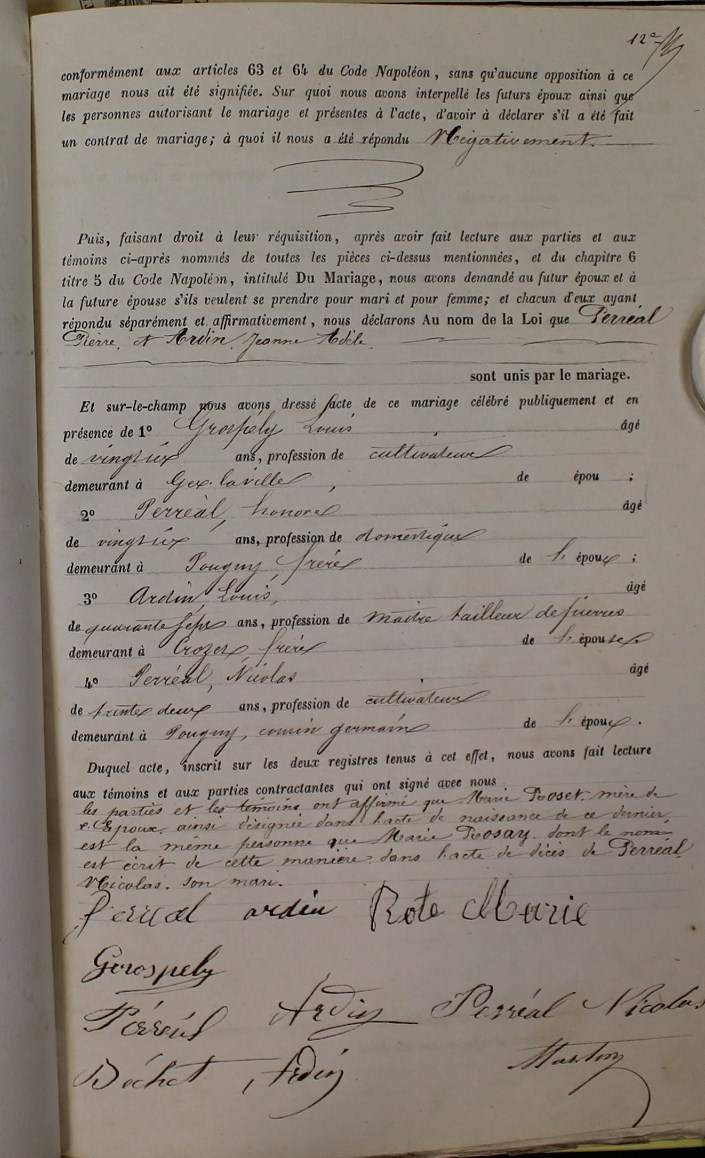 12e
conformément aux articles 63 et 64 du Code Napoléon, sans qu'aucune opposition à ce
mariage nous ait été signifiée. Sur quoi nous avons interpellé les futurs époux ainsi que
les personnes autorisant le mariage et présentes à l'acte, d'avoir à déclarer s'il a été fait
un contrat de mariage; à quoi il nous a été répondu Négativement.
Puis, faisant droit à leur réquisition, après avoir fait lecture aux parties et aux
témoins ci-après nommés de toutes les pièces ci-dessus mentionnées, et du chapitre 6
titre 5 du Code Napoléon, intitulé Du Mariage, nous avons demandé au futur époux et à
la future épouse s'ils veulent se prendre pour mari et pour femme; et chacun d'eux ayant
répondu séparément et affirmativement, nous déclarons Au nom de la Loi que Perréal
Pierre et Ardin Jeanne Adèle
sont unis par le mariage.
Et sur-le-champ nous avons dressé acte de ce mariage célébré publiquement et en
présence de 1° Grospely Louis âgé
de vingt six ans, profession de cultivateur
demeurant à Gex la ville, de épou ;
2° Perréal, honoré âgé
de vingt six ans, profession de domestique
demeurant à Pougny frère de l'époux ;
3° Ardin Louis, âgé
de quarante sept ans, profession de maître tailleur de pierres
demeurant à Crozet frère de l'épouse
4° Perréal, Nicolas âgé
de trente deux ans, profession de cultivateur
demeurant à Pougny, cousin germain de l'époux.
Duquel acte, inscrit sur les deux registres tenus à cet effet, nous avons fait lecture
aux témoins et aux parties contractantes qui ont signé avec nous
les parties et les témoins ont affirmé que Marie Roset. mère de
l'Epoux. ainsi désignée dans l'acte de naissance de ce dernier,
est la même personne que Marie Rosay. dont le nom
est écrit de cette manière dans l'acte de décès de Perréal
Nicolas. son mari.
Perréal ardin Rote Marie
Gorospely
Perréal Ardin Perréal Nicolas
Béchet Ardin